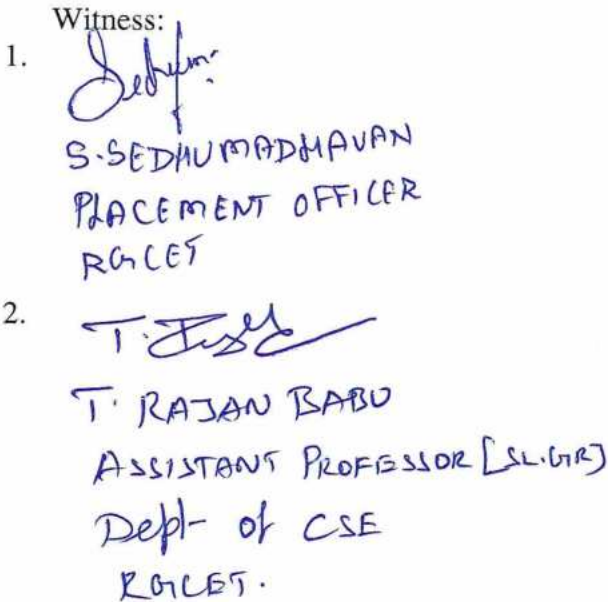 Witness:
1.
S.SEDHUMADHAVAN
PLACEMENT OFFICER
RGCET
2.
T. RAJAN BABU
ASSISTANT PROFESSOR [SL.GR]
Dept of CSE
RGCET.